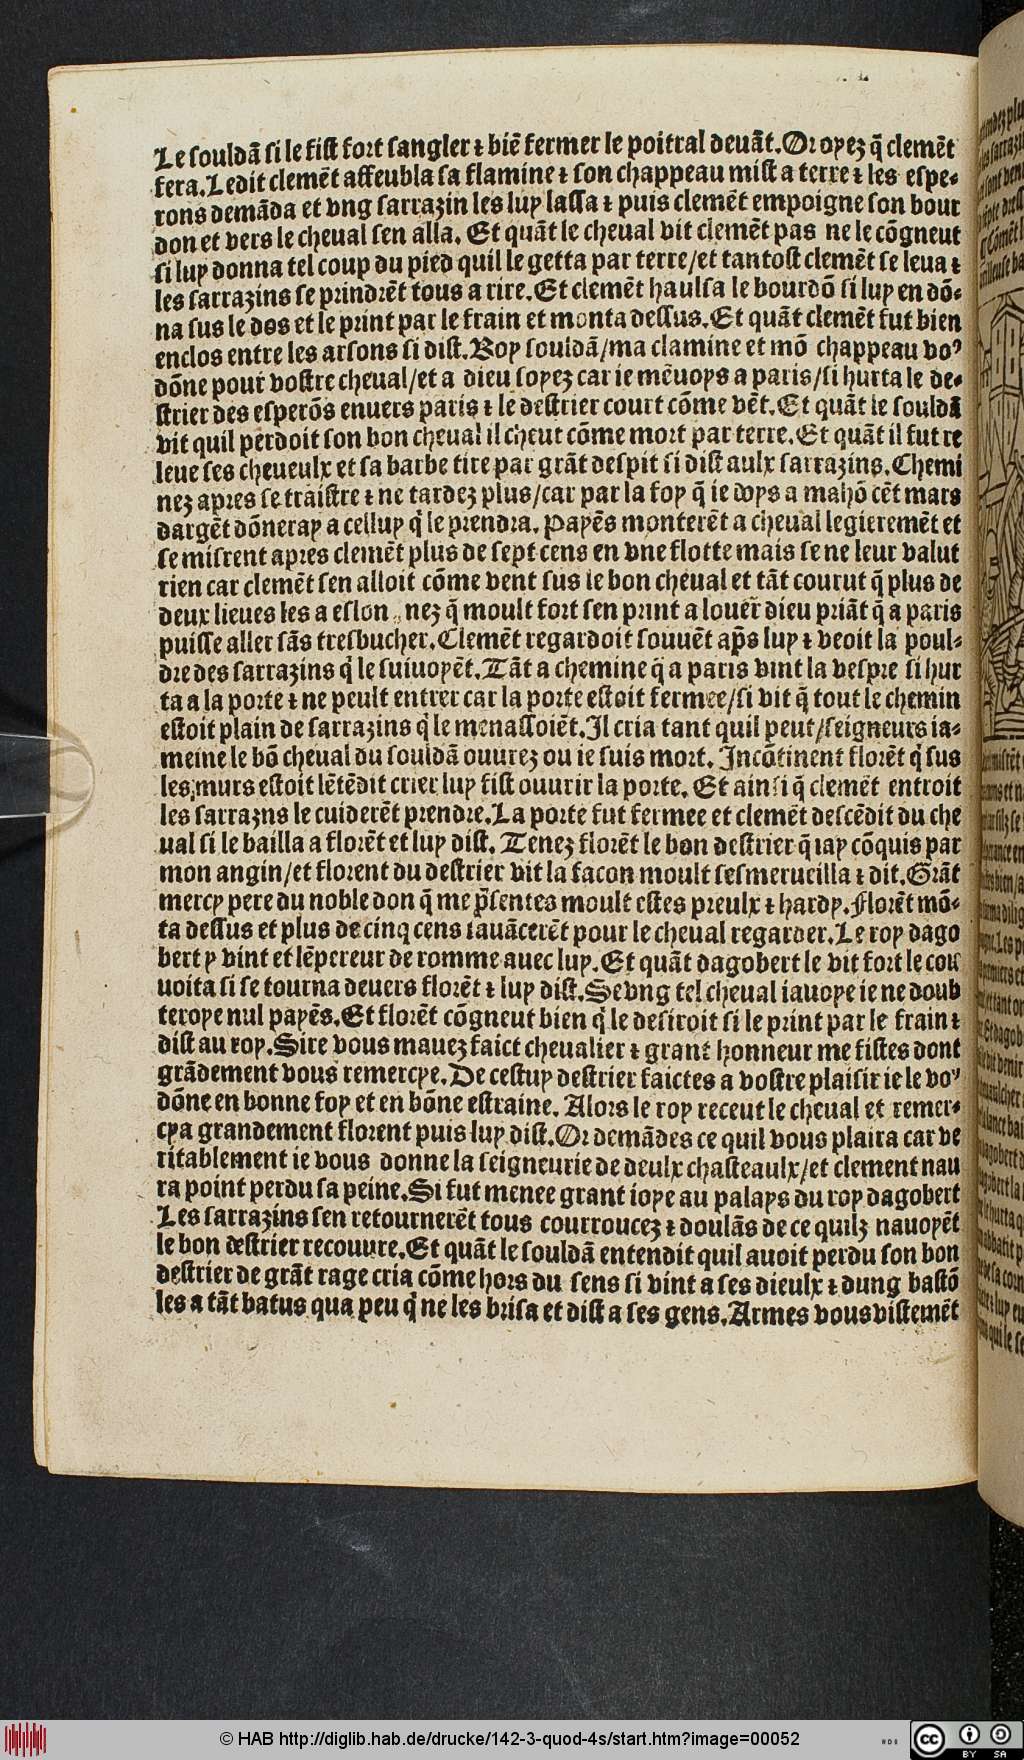 Le souldā si le fist fort sangler ⁊ biē fermer le poitral deuāt. Or oyez q̄ clemēt
fera. Ledit clemēt affeubla sa flamine ⁊ son chappeau mist a terre ⁊ les espe-
rons demāda et vng sarrazin les luy lassa ⁊ puis clemēt empoigne son bour
don et vers le cheual sen alla. Et quāt le cheual vit clemēt pas ne le cōgneut
si luy donna tel coup du pied quil le getta par terre/et tantost clemēt se leua ⁊
les sarrazins se prindrēt tous a rire. Et clemēt haulsa le bourdō si luy en dō-
na sus le dos et le print par le frain et monta dessus. Et quāt clemēt fut bien
enclos entre les arsons si dist. Roy souldā/ma clamine et mō chappeau voꝰ
dōne pour vostre cheual/et a dieu soyez car ie mēuoys a paris/si hurta le de-
strier des esperōs enuers paris ⁊ le destrier court cōme vēt. Et quāt le souldā
vit quil perdoit son bon cheual il cheut cōme mort par terre. Et quāt il fut re
leue ses cheueulx et sa barbe tire par grāt despit si dist aulx sarrazins. Chemi
nez apres se trāistre ⁊ ne tardez plus/car par la foy q̄ ie doys a mahō cēt mars
dargēt dōneray a celluy q̇ le prendra. Payēs monterēt a cheual legieremēt et
se misrent apres clemēt plus de sept cens en vne flotte mais se ne leur valut
rien car clemēt sen alloit cōme vent sus le bon cheual et tāt courut q̄ plus de
deux lieues les a eslon nez q̄ moult fort sen print a louer dieu priāt q̄ a paris
puisse aller sās tresbucher. Clemēt regardoit souuēt ap̄s luy ⁊ veoit la poul-
dre des sarrazins q̇ le suiuoyēt. Tāt a chemine q̄ a paris vint la vespre si hur
ta a la porte ⁊ ne peult entrer car la porte estoit fermee/si vit q̄ tout le chemin
estoit plain de sarrazins q̇ le menassoiēt. Il cria tant quil peut/seigneurs ia-
meine le bō cheual du souldā ouurez ou ie suis mort. Incōtinent florēt q̇ sus
les murs estoit lētēdit crier luy fist ouurir la porte. Et ainsi q̄ clemēt entroit
les sarrazns le cuiderēt prendre. La porte fut fermee et clemēt descēdit du che
ual si le bailla a florēt et luy dist. Tenez florēt le bon destrier q̄ iay cōquis par
mon angin/et florent du destrier vit la facon moult sesmerueilla ⁊ dit. Grāt
mercy pere du noble don q̄ me p̄sentes moult estes preulx ⁊ hardy. Florēt mō-
ta dessus et plus de cinq cens sauācerēt pour le cheual regarder. Le roy dago
bert y vint et lēpereur de romme auec luy. Et quāt dagobert le vit fort le cou
uoita si se tourna deuers florēt ⁊ luy dist. Se vng tel cheual iauoye ie ne doub
teroye nul payēs. Et florēt cōgneut bien q̇ le desiroit si le print par le frain ⁊
dist au roy. Sire vous mauez faict cheualier ⁊ grant honneur me fistes dont
grādement vous remercye. De cestuy destrier faictes a vostre plaisir ie le voꝰ
dōne en bonne foy et en bōne estraine. Alors le roy receut le cheual et remer-
cya grandement florent puis luy dist. Or demādes ce quil vous plaira car ve
ritablement ie vous donne la seigneurie de deulx chasteaulx/et clement nau
ra point perdu sa peine. Si fut menee grant ioye au palays du roy dagobert
Les sarrazins sen retournerēt tous courroucez ⁊ doulās de ce quilz nauoyēt
le bon destrier recouure. Et quāt le souldā entendit quil auoit perdu son bon
destrier de grāt rage cria cōme hors du sens si vint a ses dieulx ⁊ dung bastō
les a tāt batus qua peu q̇ ne les brisa et dist a ses gens. Armes vous vistemēt
© HAB http://diglib.hab.de/drucke/142-3-quod-4s/start.htm?image=00052
cc BY SA